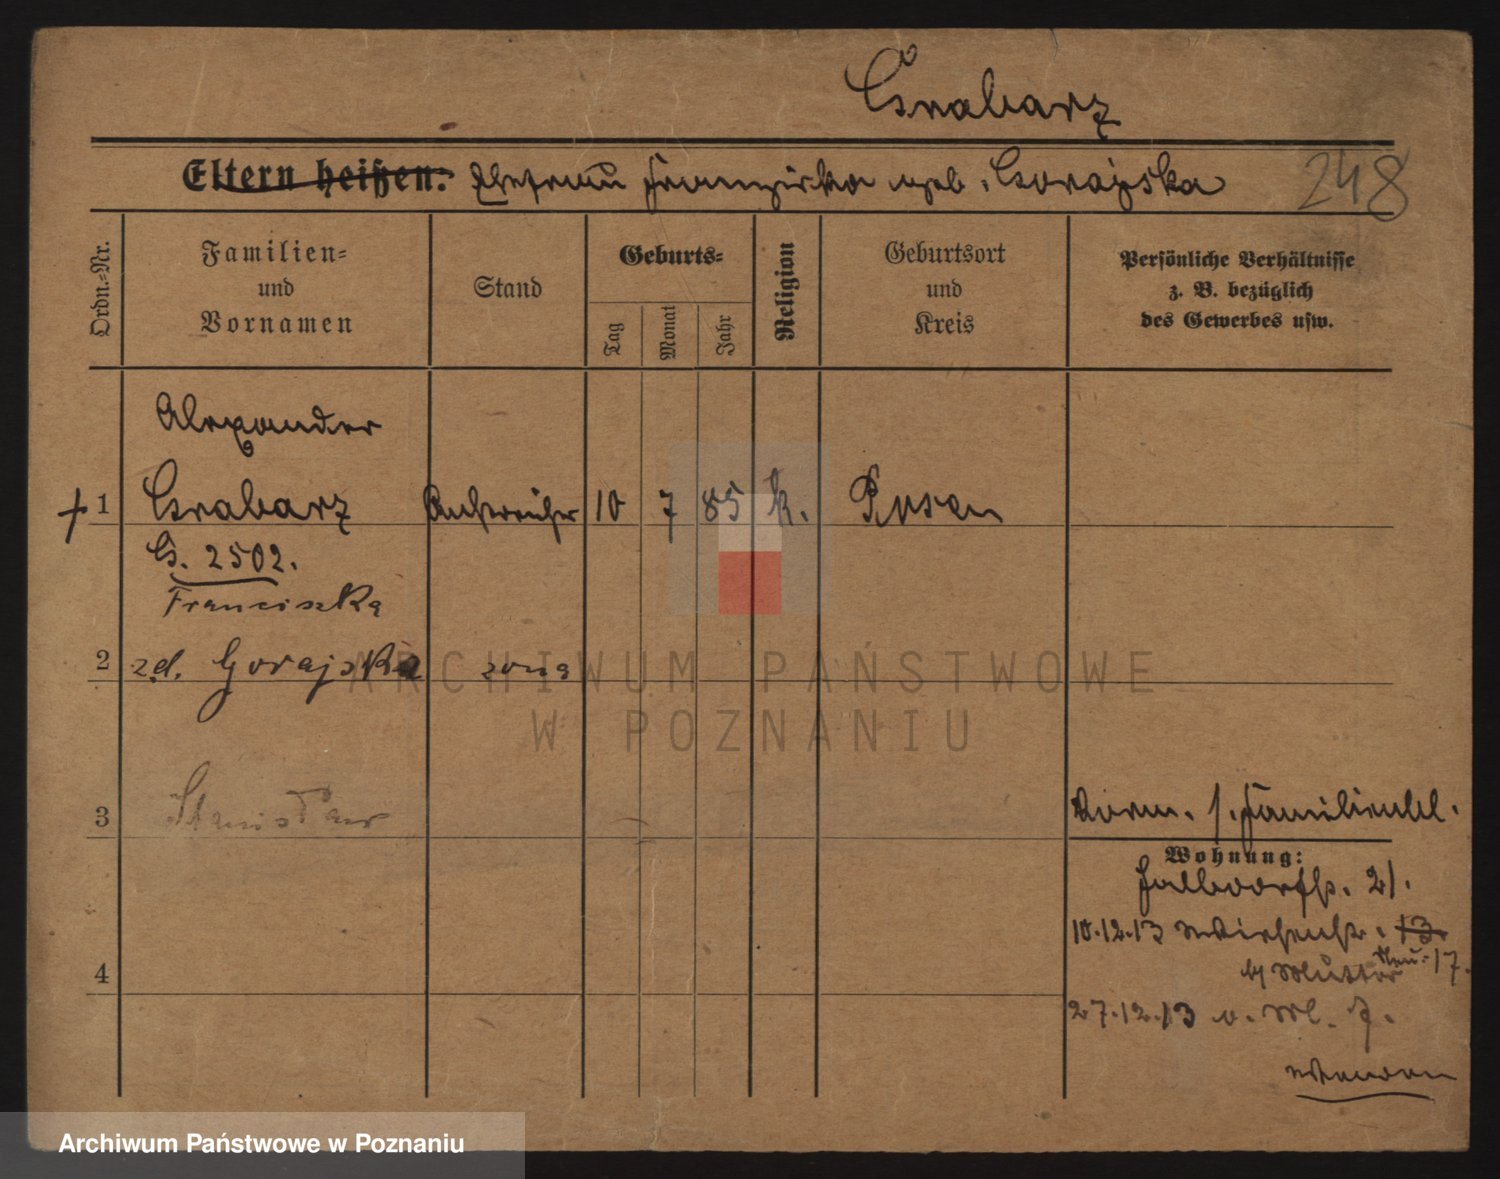 Grabarz
Eltern heißen: Ehefrau Franziska geb. Gorajska
248
Ordn.-Nr.
Familien-
und
Vornamen
Stand
Geburts-
Tag
Monat
Jahr
Religion
Geburtsort
und
Kreis
Persönliche Verhältnisse
z. B. bezüglich
des Gewerbes usw.
Alexander
1 Grabarz Anstreicher 10 7 85 k. Posen
G. 2502.
Franciszka
2 zd. Gorajska zona
3 Stanisław
Verm. s. Familienbl.
Wohnung:
21.
10.12.13 13
b/ Mutter neu: 17.
4
27.12.13 v. 7.
Archiwum Państwowe
w Poznaniu
Archiwum Państwowe w Poznaniu